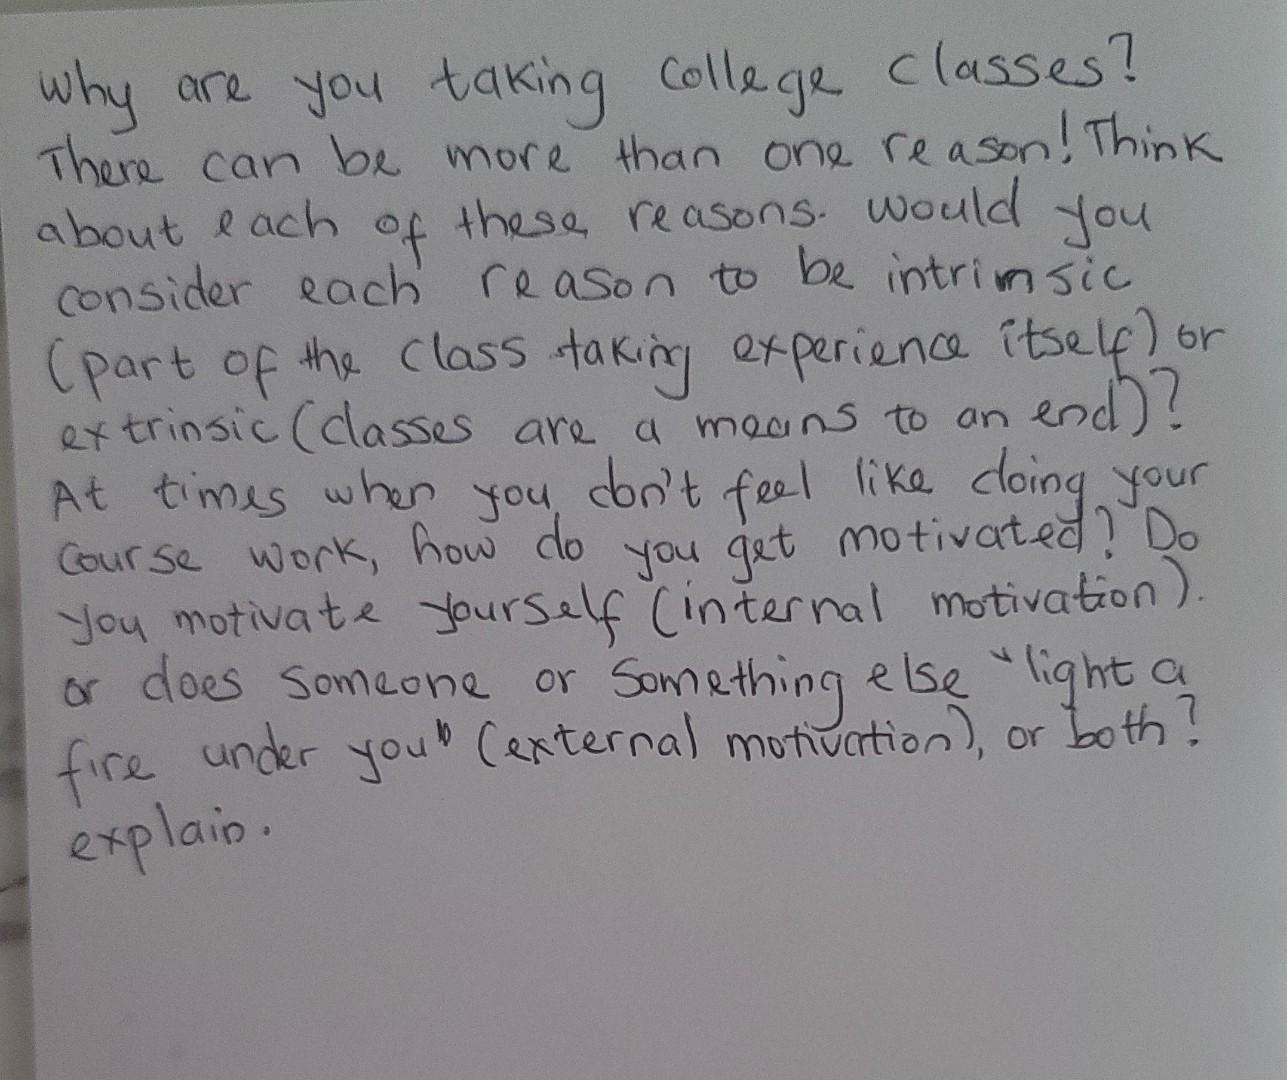 Why are you taking College classes?
There can be more than one reason! Think
about each of these reasons. would you
consider each reason to be intrimsic
(part of the class taking experience itself) or
extrinsic (classes are a means to an end)?
At times when you don't feel like doing your
course work, how do you get motivated? Do
you motivate yourself (internal motivation).
or does someone or something else "light a
fire under you" (external motivation), or both?
explain.